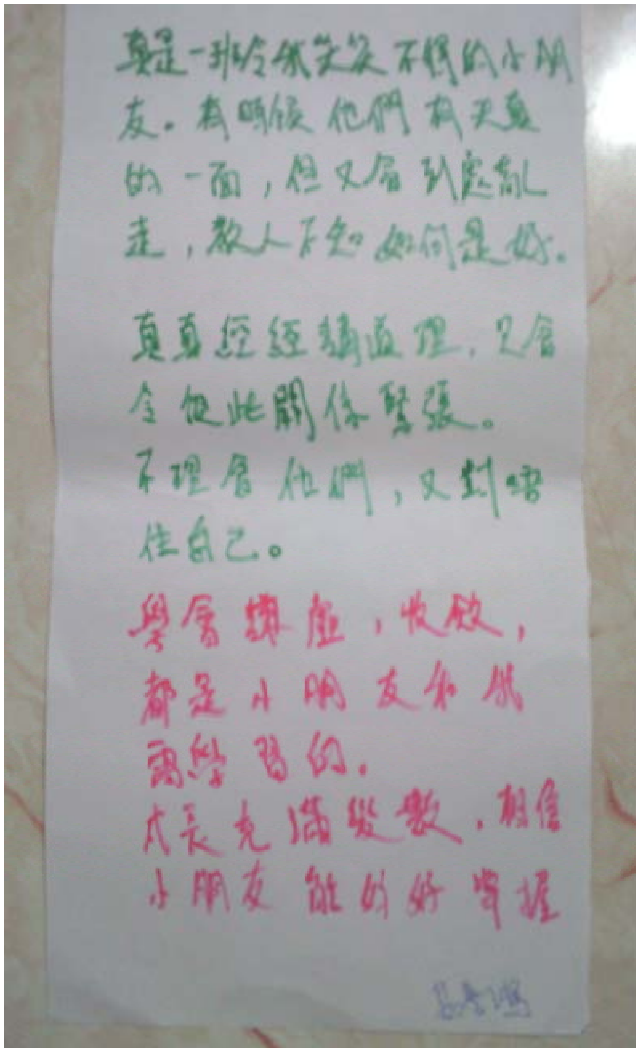 真是一班令我哭笑不得的小朋
友。有時候他們有天真
的一面，但又會到處亂
走，教人不知如何是好。
真真經經講道理，只會
令彼此關係緊張。
不理會他們，又對唔
住自己。
學會謙虛，收斂，
都是小朋友和我
需學習的。
成長充滿變數，相信
小朋友能好好掌握